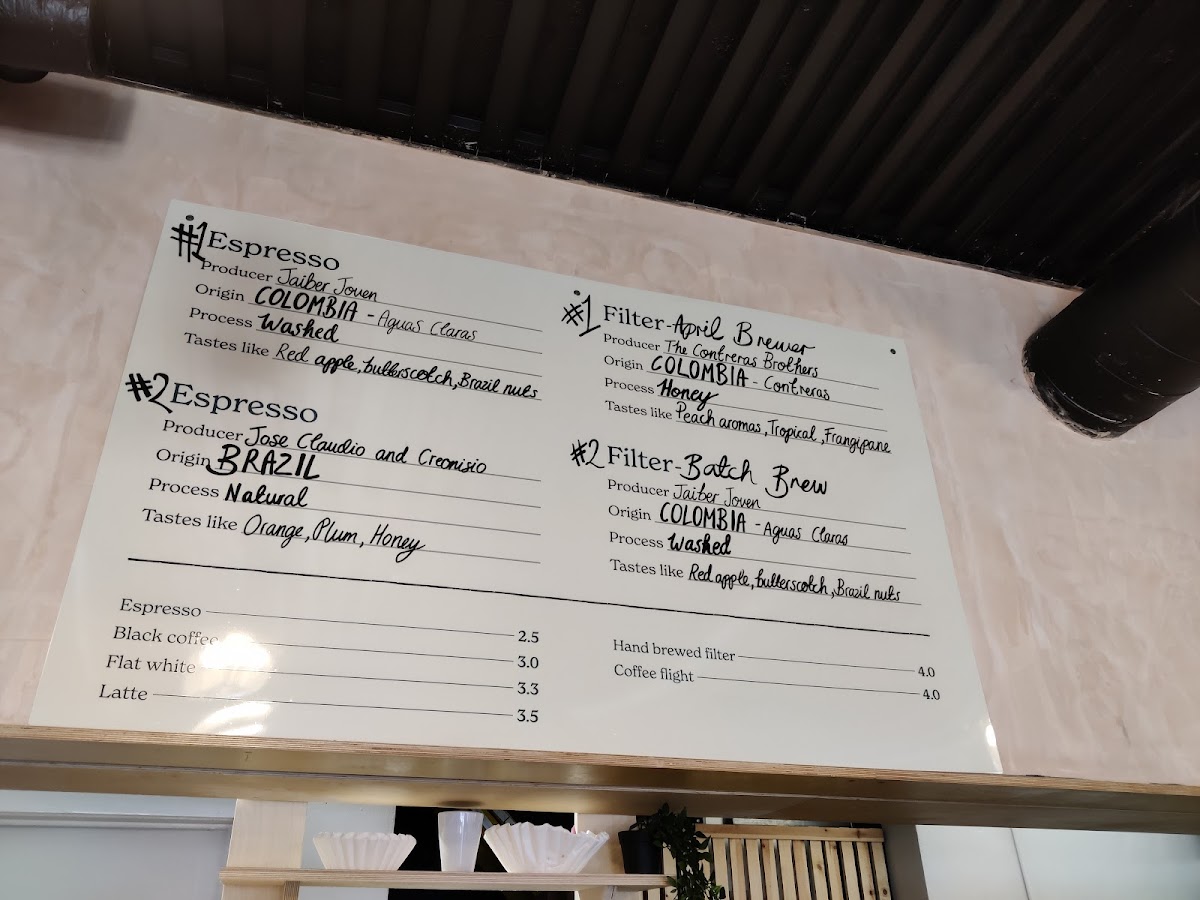 #1 Espresso
Producer Jaiber Joven
Origin COLOMBIA - Aguas Claras
Process Washed
Tastes like Red apple, butterscotch, Brazil nuts
#2 Espresso
Producer Jose Claudio and Creonisio
Origin BRAZIL
Process Natural
Tastes like Orange, Plum, Honey
#1 Filter - April Brewer
Producer The Contreras Brothers
Origin COLOMBIA - Contreras
Process Honey
Tastes like Peach aromas, Tropical, Frangipane
#2 Filter - Batch Brew
Producer Jaiber Joven
Origin COLOMBIA - Aguas Claras
Process Washed
Tastes like Red apple, butterscotch, Brazil nuts
Espresso 2.5
Black coffee 3.0
Flat white 3.3
Latte 3.5
Hand brewed filter 4.0
Coffee flight 4.0